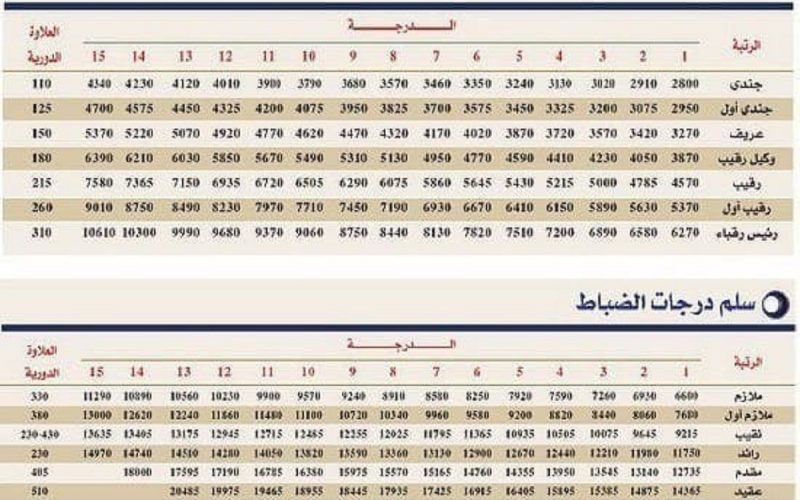 الرتبة الـــدرجـــة العلاوة الدورية
1 2 3 4 5 6 7 8 9 10 11 12 13 14 15
جندي 2800 2910 3020 3130 3240 3350 3460 3570 3680 3790 3900 4010 4120 4230 4340 110
جندي أول 2950 3075 3200 3325 3450 3575 3700 3825 3950 4075 4200 4325 4450 4575 4700 125
عريف 3270 3420 3570 3720 3870 4020 4170 4320 4470 4620 4770 4920 5070 5220 5370 150
وكيل رقيب 3870 4050 4230 4410 4590 4770 4950 5130 5310 5490 5670 5850 6030 6210 6390 180
رقيب 4570 4785 5000 5215 5430 5645 5860 6075 6290 6505 6720 6935 7150 7365 7580 215
رقيب أول 5370 5630 5890 6150 6410 6670 6930 7190 7450 7710 7970 8230 8490 8750 9010 260
رئيس رقباء 6270 6580 6890 7200 7510 7820 8130 8440 8750 9060 9370 9680 9990 10300 10610 310
سلم درجات الضباط
الرتبة الـــدرجـــة العلاوة الدورية
1 2 3 4 5 6 7 8 9 10 11 12 13 14 15
ملازم 6600 6930 7260 7590 7920 8250 8580 8910 9240 9570 9900 10230 10560 10890 11290 330
ملازم أول 7680 8060 8440 8820 9200 9580 9960 10340 10720 11100 11480 11860 12240 12620 13000 380
نقيب 9215 9645 10075 10505 10935 11365 11795 12025 12255 12485 12715 12945 13175 13405 13635 230-430
رائد 11750 11980 12210 12440 12670 12900 13130 13360 13590 13820 14050 14280 14510 14740 14970 230
مقدم 12735 13140 13545 13950 14355 14760 15165 15570 15975 16380 16785 17190 17595 18000 405
عقيد 14365 14875 15385 15895 16405 16915 17425 17935 18445 18955 19465 19975 20485 510